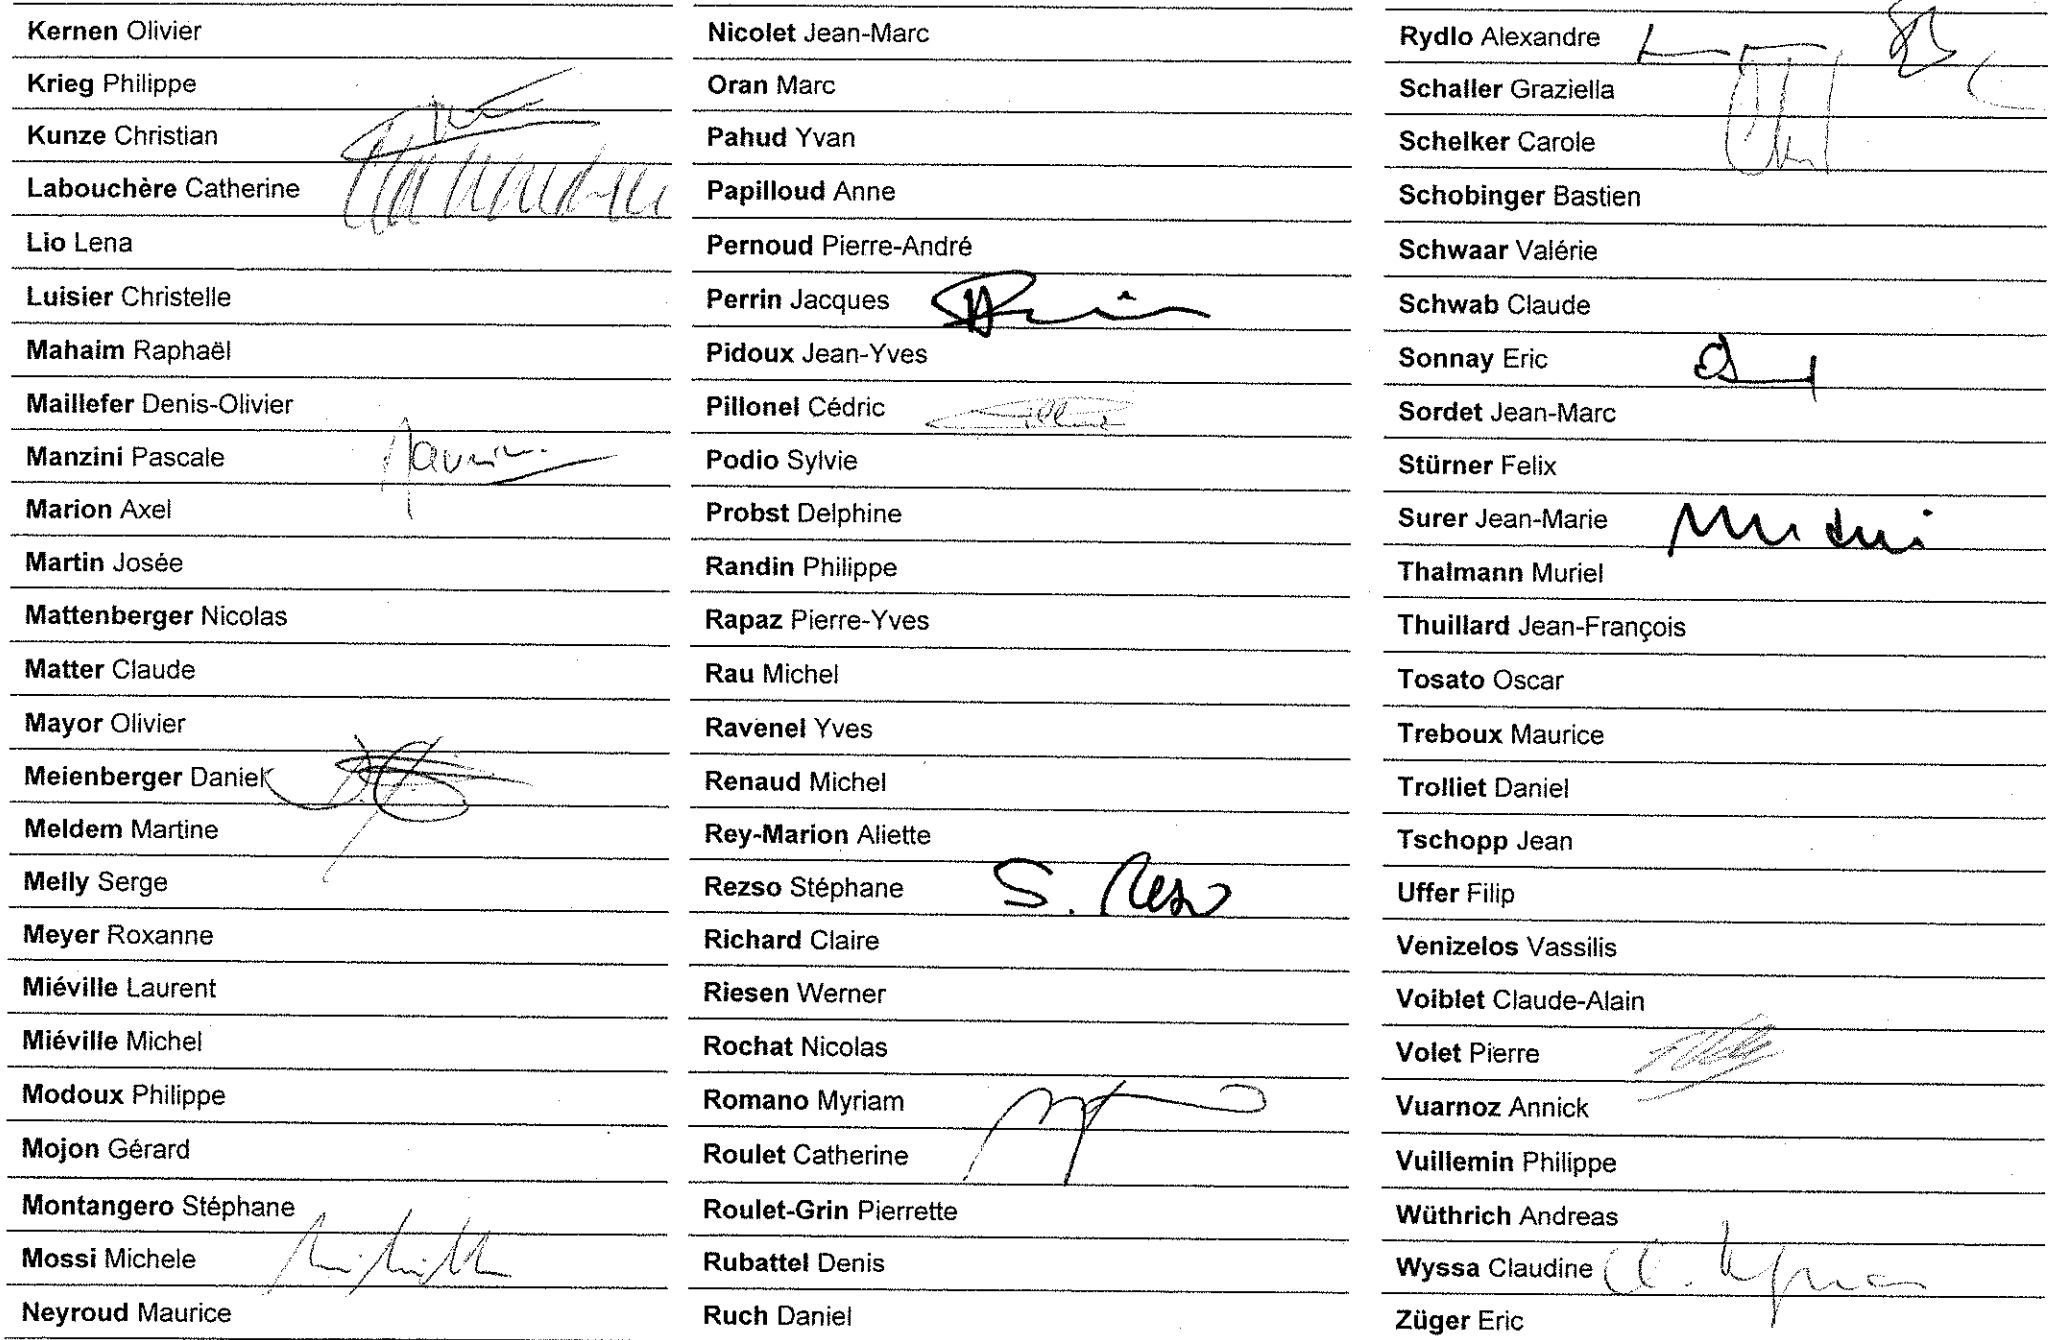 Kernen Olivier
Krieg Philippe
Kunze Christian
Labouchère Catherine
Lio Lena
Luisier Christelle
Mahaim Raphaël
Maillefer Denis-Olivier
Manzini Pascale
Marion Axel
Martin Josée
Mattenberger Nicolas
Matter Claude
Mayor Olivier
Meienberger Daniel
Meldem Martine
Melly Serge
Meyer Roxanne
Miéville Laurent
Miéville Michel
Modoux Philippe
Mojon Gérard
Montangero Stéphane
Mossi Michele
Neyroud Maurice
Nicolet Jean-Marc
Oran Marc
Pahud Yvan
Papilloud Anne
Pernoud Pierre-André
Perrin Jacques
Pidoux Jean-Yves
Pillonel Cédric
Podio Sylvie
Probst Delphine
Randin Philippe
Rapaz Pierre-Yves
Rau Michel
Ravenel Yves
Renaud Michel
Rey-Marion Aliette
Rezso Stéphane S. Rezso
Richard Claire
Riesen Werner
Rochat Nicolas
Romano Myriam
Roulet Catherine
Roulet-Grin Pierrette
Rubattel Denis
Ruch Daniel
Rydlo Alexandre
Schaller Graziella
Schelker Carole
Schobinger Bastien
Schwaar Valérie
Schwab Claude
Sonnay Eric
Sordet Jean-Marc
Stürner Felix
Surer Jean-Marie
Thalmann Muriel
Thuillard Jean-François
Tosato Oscar
Treboux Maurice
Trolliet Daniel
Tschopp Jean
Uffer Filip
Venizelos Vassilis
Voiblet Claude-Alain
Volet Pierre
Vuarnoz Annick
Vuillemin Philippe
Wüthrich Andreas
Wyssa Claudine
Züger Eric